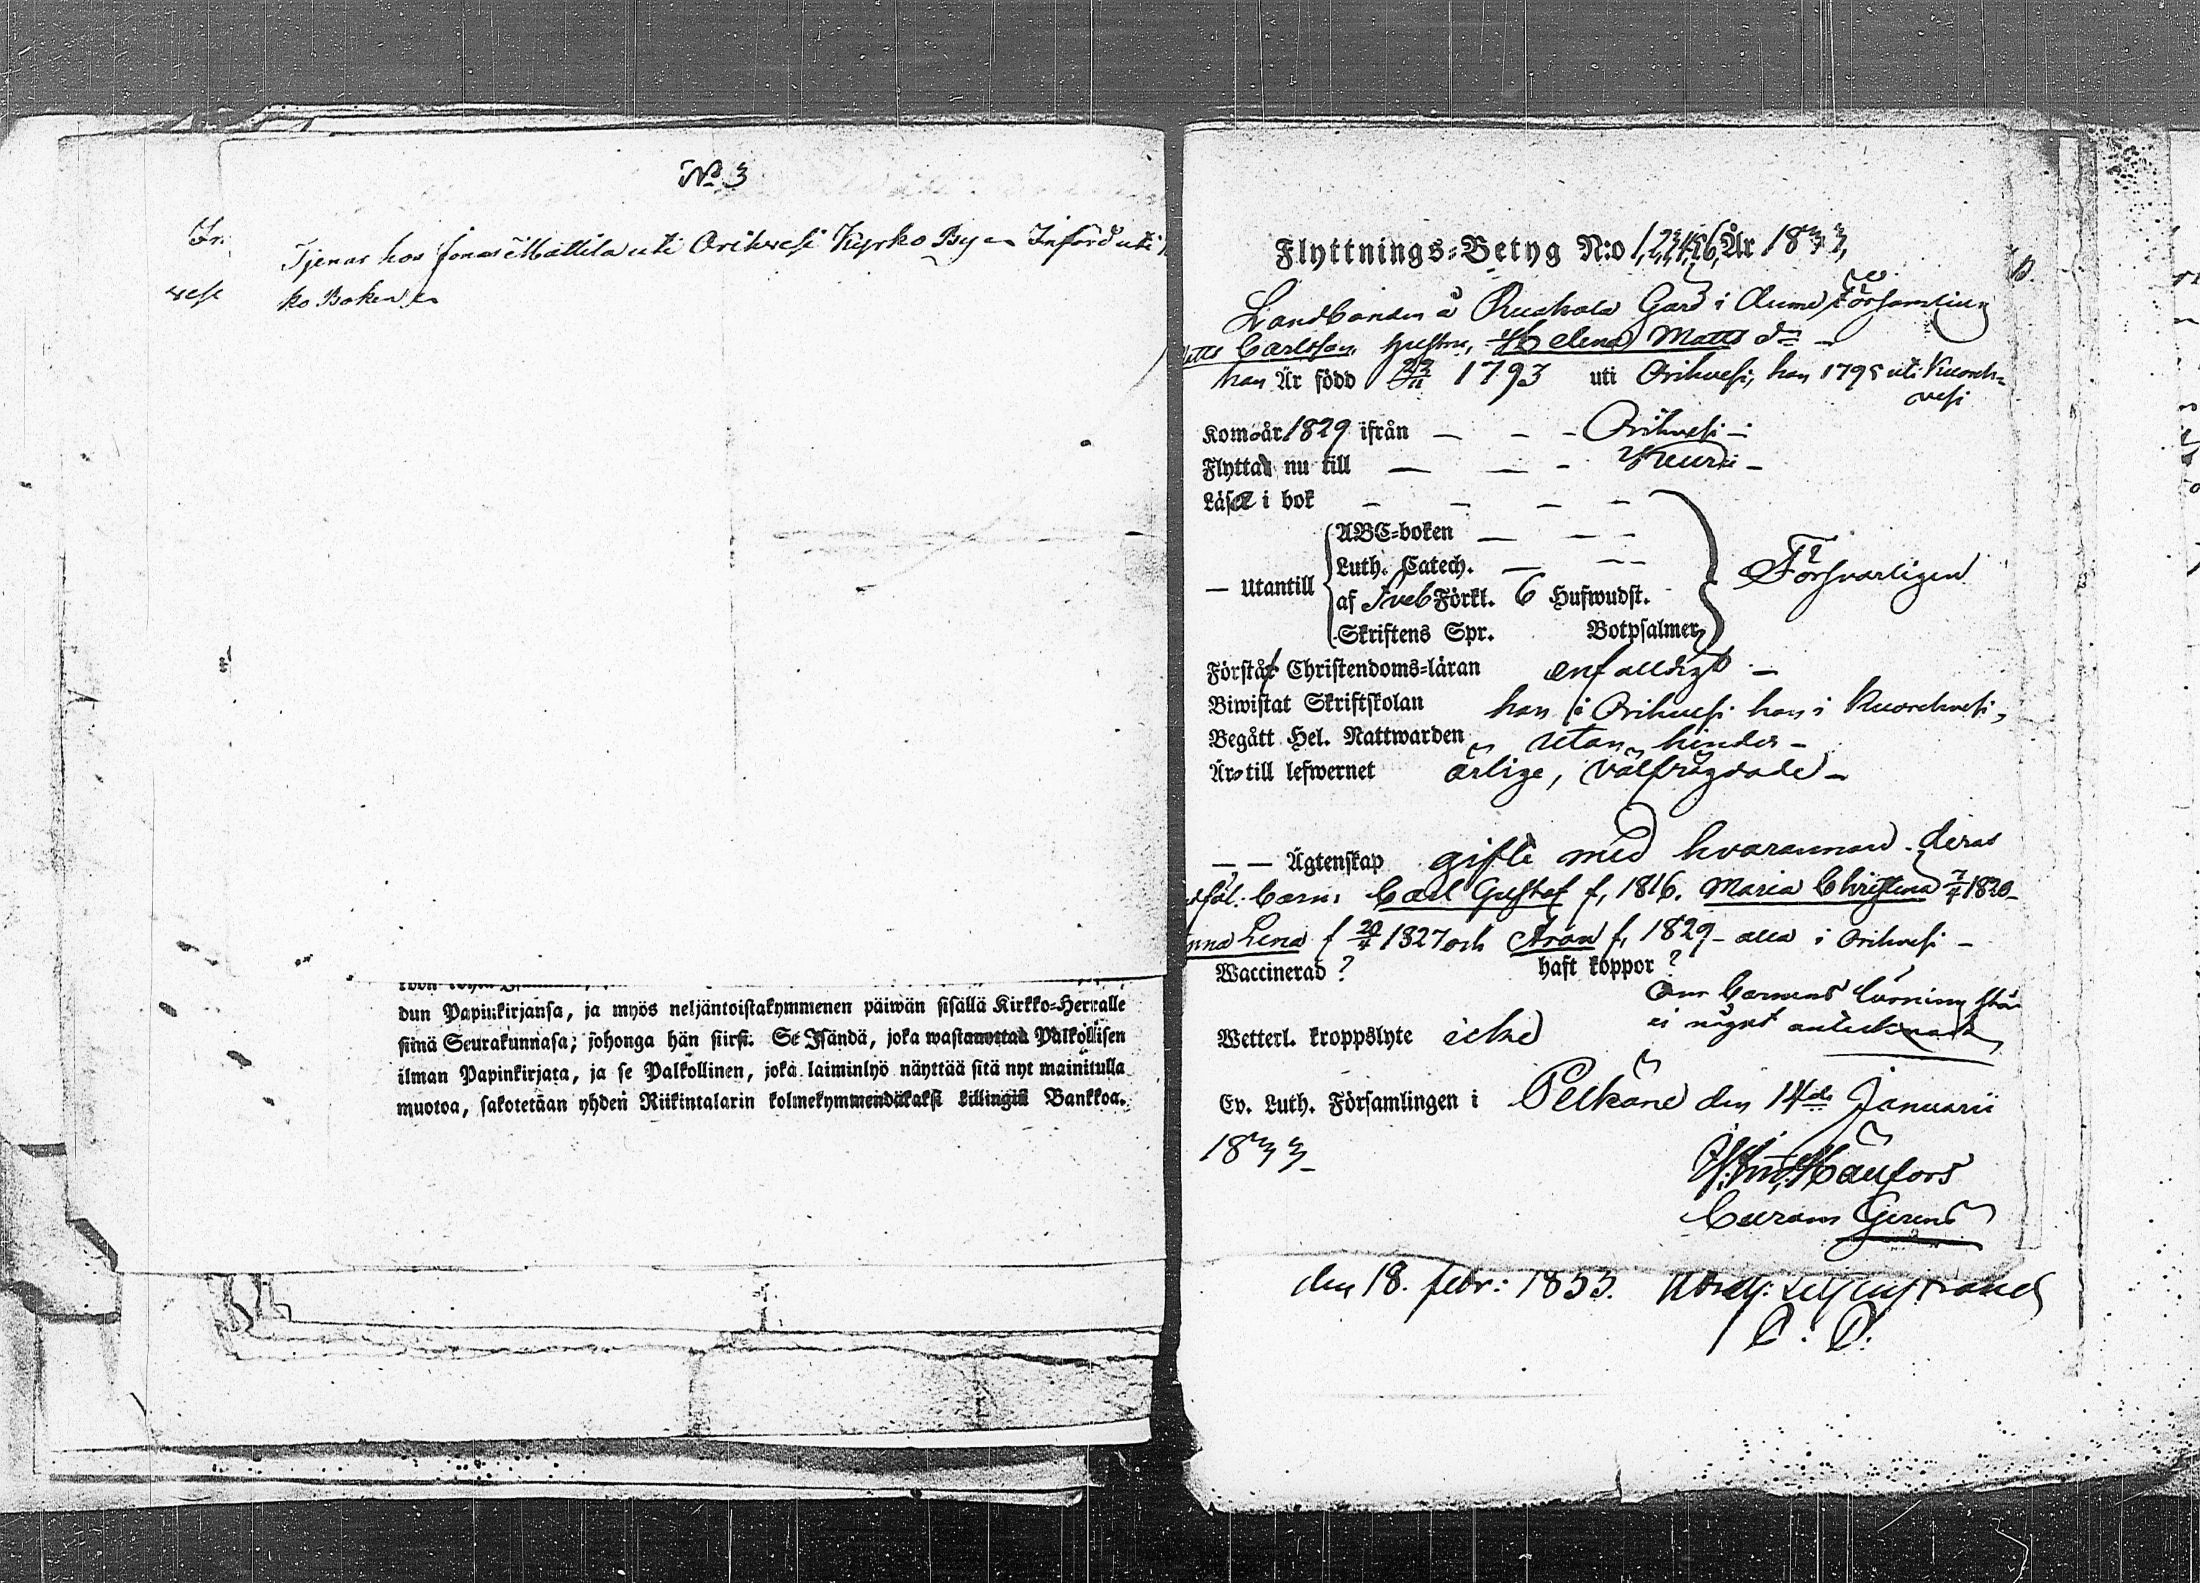 No 3
Tjenar hos Jonas Mattila uti Orihvesi Kyrko By Införd uti
ko Boken
dun Papinkirjansa, ja myös neljäntoistakymmenen päiwän sisällä Kirkko-Herralle
siinä Seurakunnasa; johonga hän siirsi. Se Isändä, joka wastanottaa Palkollisen
ilman Papinkirjata, ja se Palkollinen, joka laiminlyö näyttää sitä nyt mainitulla
muotoa, sakotetaan yhden Riikintalarin kolmekymmendäkaksi killingiä Bankkoa.
Flyttnings-Betyg N:o 1,2,3,4,5,6, År 1833,
Landbonden å Gård i Församling
Carlsson, hustru, Helena Matts dr
han Är född 23/11 1793 uti Orihvesi, hon 1795 uti Kuoreh-
vesi
Kom år 1829 ifrån — — — Orihvesi —
Flytta nu till — — — Keuru —
Läsa i bok — — — —
ABC-boken — — —
Luth. Catech. — — —
— Utantill af Sveb Förkl. 6 Hufwudst. Försvarligen
Skriftens Spr. Botpsalmer
Förstå Christendoms-läran enfalldigt —
Biwistat Skriftskolan han i Orihvesi hon i Kuorehvesi,
Begått Hel. Nattwarden utan hinder —
Äro till lefwernet ärlige, välfrägdade —
—,— Ägtenskap gifte med hvarannan. deras
Barn: Carl Gustaf f. 1816. Maria Christina 7/4 1820 —
Anna Lena f 20/4 1827 och Aron f. 1829 — alla i Orihvesi —
Waccinerad ? haft koppor ?
Om Barnens läsning står
ei något antecknadt
Wetterl. kroppslyte icke
Ev. Luth. Församlingen i Pelkäne den 14de Januarii
1833 —
Curam Gerens
den 18. febr: 1833.